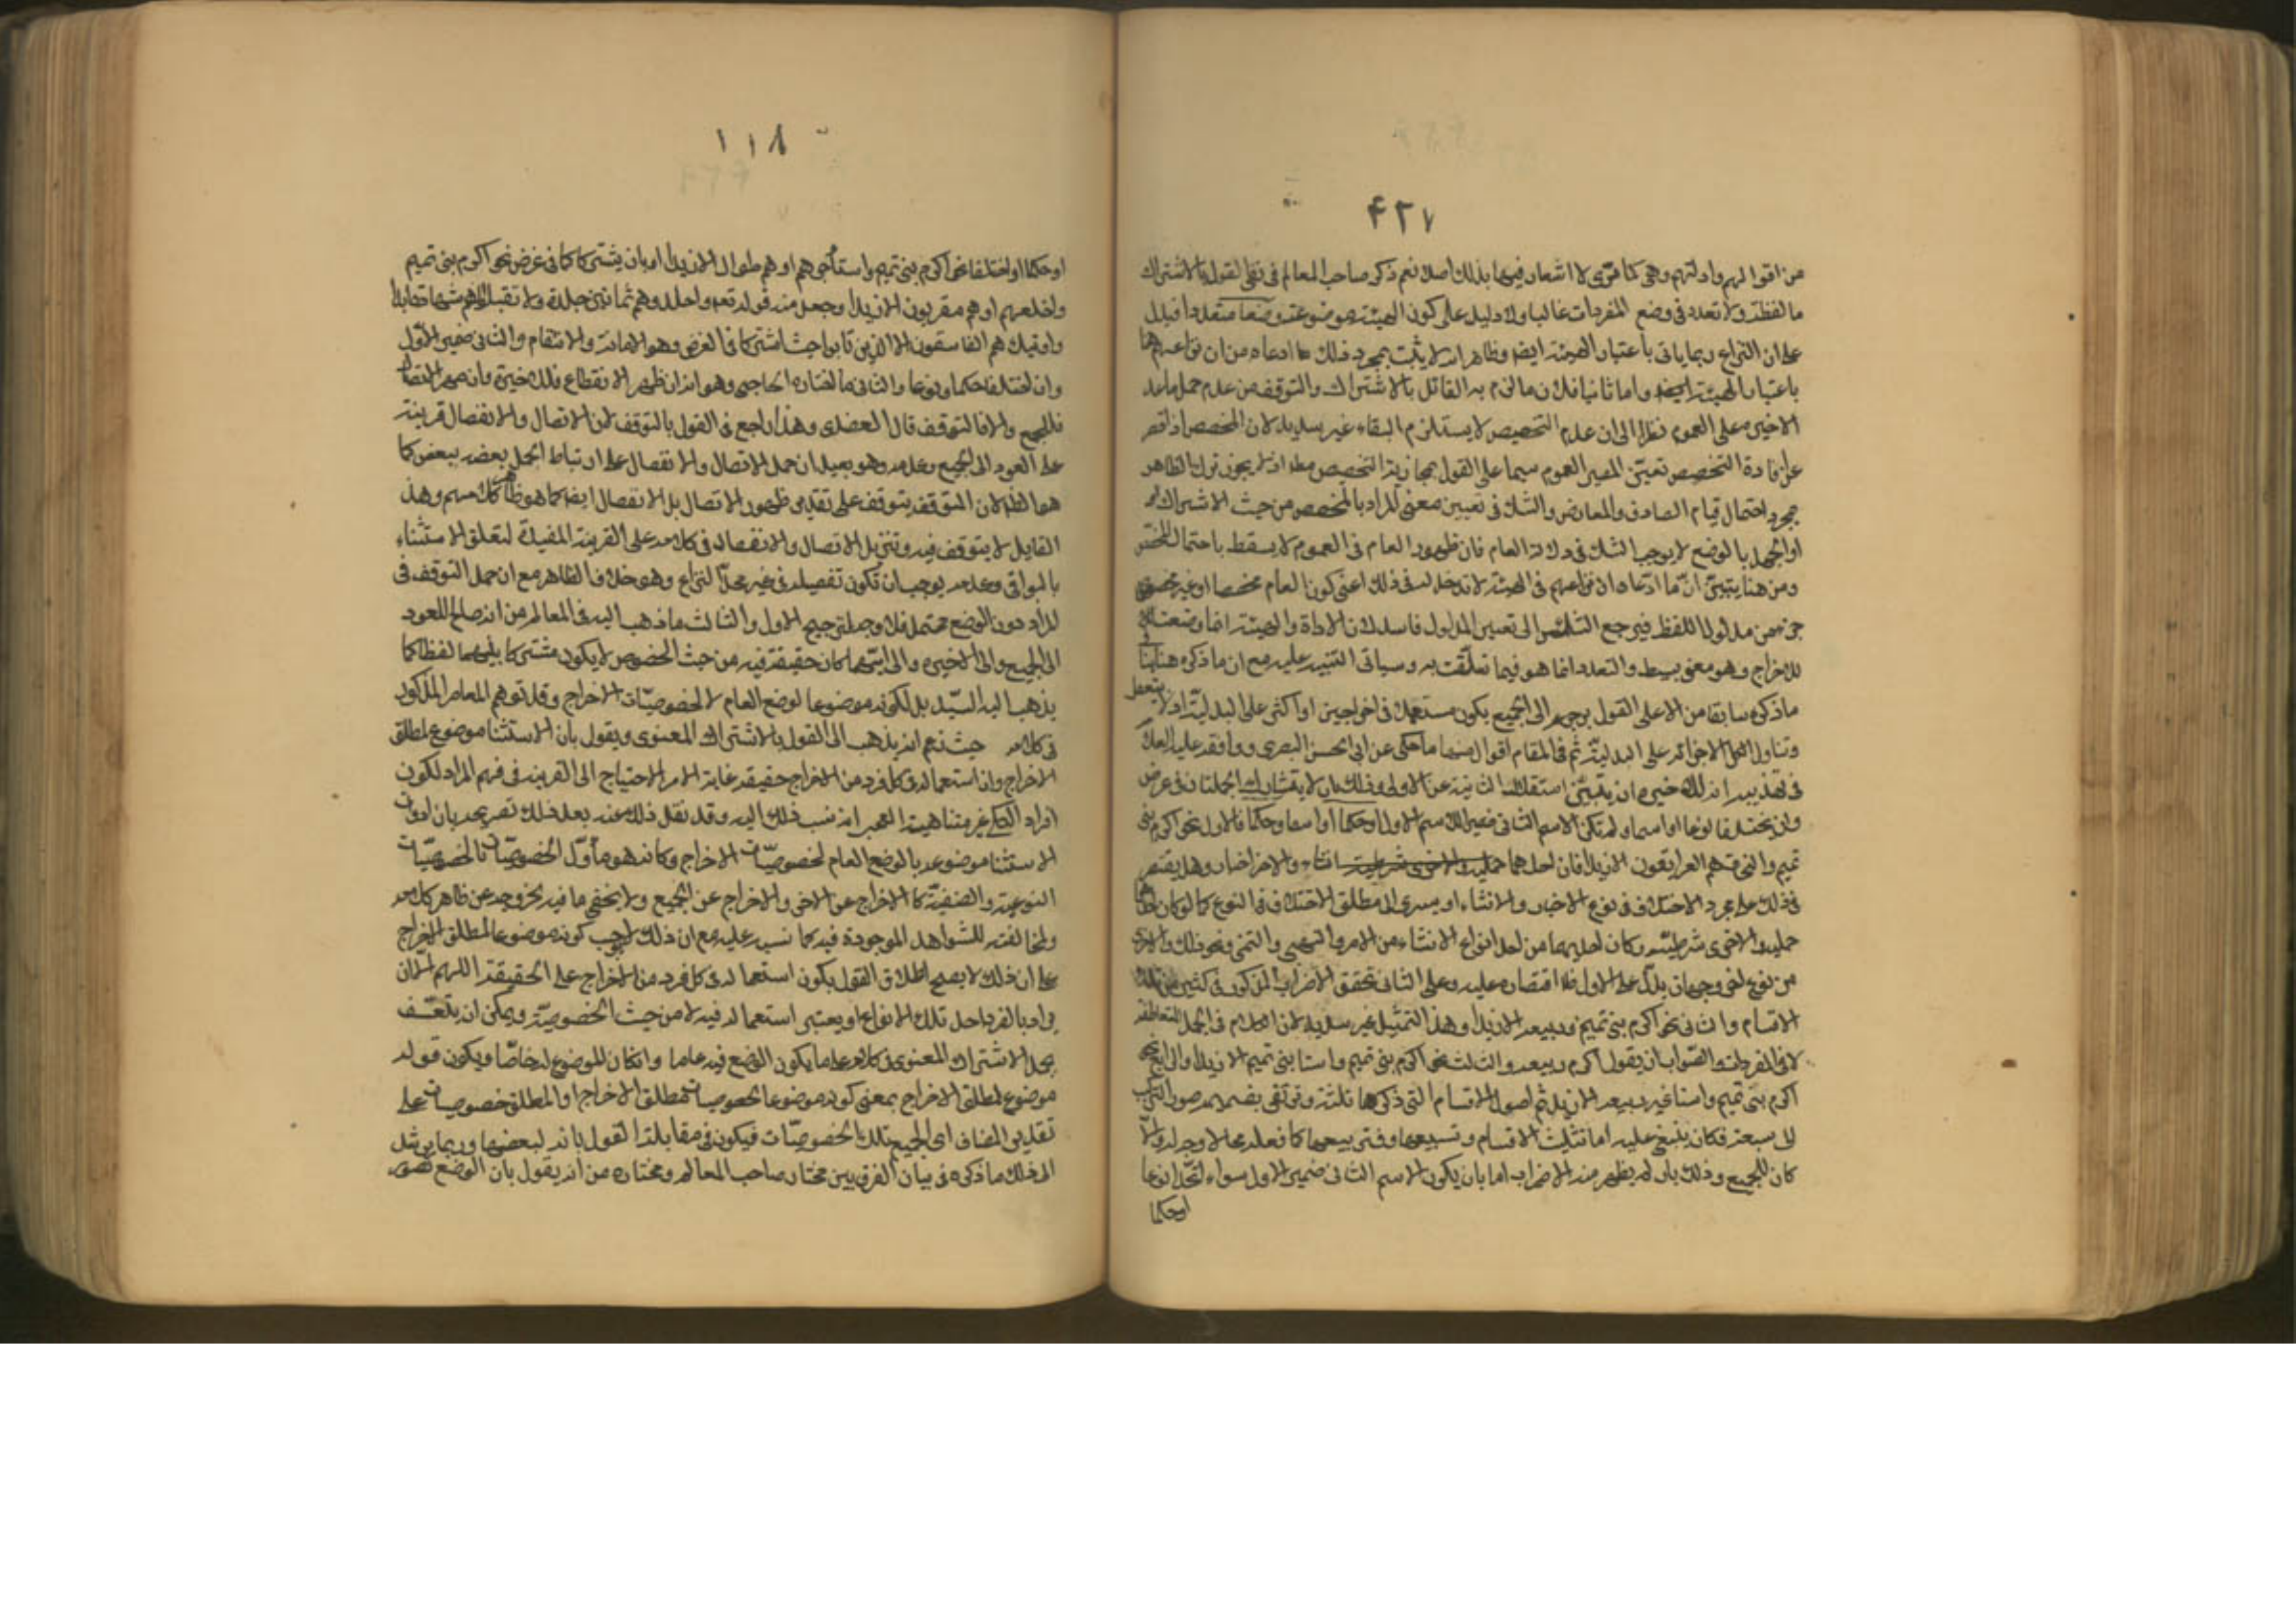 ۴۲۷
من اقوالهم وادلتهم وهي كما ترى لا اشعار فيها بذلك اصلا نعم ذكر صاحب المعالم في نفي القول بالاشتراك
ما لفظه ولا تعدد في وضع المفردات غالبا ولا دليل على كون الهيئة موضوعة وضعا متعددا فبدل
على ان النزاع ربما ياتي باعتبار الهيئة ايضا وظاهر انه لا يثبت بمجرد ذلك ما ادعاه من ان نزاعهم
باعتبار الهيئة ايضا واما ثانيا فلان ما الزم به القائل بالاشتراك والتوقف من عدم حمل ما عدا
الاخيرة على العموم نظرا الى ان عدم التخصيص لا يستلزم البقاء غير سديد لان المخصص اذا قصر
عن افادة التخصيص تعين المصير العموم سيما على القول بمجازية التخصيص مط اذ لا يجوز ترك الظاهر
بمجرد احتمال قيام الصارف والمعارض والشك في تعيين معنى المراد بالمخصص من حيث الاشتراك
او الجهل بالوضع لا يوجب الشك في دلالة العام فان ظهور العام في العموم لا يسقط باحتمال المخصص
ومن هنا يتبين ان ما ادعاه ان نزاعهم في الهيئة لا مدخل له في ذلك اعني كون العام مخصصا او غير مخصص
جزء من مدلول اللفظ فيرجع الشك الى تعيين المدلول فاسد لان الاداة والهيئة انما وضعتا
للاخراج وهو معنى بسيط والتعدد انما هو فيما تعلقت به وسياتي التنبيه عليه مع ان ما ذكره هنا
ما ذكره سابقا من ان على القول برجوعه الى الجميع يكون مستعملا في اخراجين او اكثر على البدلية اذ لا
وتناول اللفظ لاجزائه على البدلية ثم في المقام اقوال منها ما حكى عن ابي الحسن البصري ووافقه عليه العلامة
في تهذيبه انه للاخيرة ان يتبين استقلال الثانية عن الاولى وذلك بان لا يتشارك الجملتان في غرض
وان يختلفا نوعا او اسما ولم تكن الاسم الثاني ضمير الاسم الاول او حكما او اسما وحكما فالاول نحو اكرم بني
تميم والنحاة هم العراقيون الا زيدا فان احدهما انشاء والاخر اخبار وهل يقتصر
في ذلك على مجرد الاختلاف في نوع الاخبار والانشاء او يسري الى مطلق الاختلاف في النوع كما لو كان
حملية والاخرى شرطية وكان احديهما من احد انواع الانشاء من الامر والنهي والتمني ونحو ذلك والاخرى
من نوع اخر وجهان يدل على الاول فلا اقتصاره عليه وعلى الثاني تحقق الاضراب المذكور في كثير من تلك
الاقسام والثاني نحو اكرم بني تميم وربيعة الا زيدا وهذا التمثيل غير سديد لان الكلام في الجمل المتعاطفة
لا في المفردات والصواب ان يقول اكرم ربيعة والثالث نحو اكرم بني تميم واستا بني تميم الا زيدا والرابع نحو
اكرم بني تميم واستا غير ربيعة الا زيدا ثم اصول الاقسام التي ذكرها ثلثة وترتقي بضم صور التركيب
الى سبعة فكان ينبغي عليه اما تثليث الاقسام وتسبيعها وفي تربيعها كما فعله مما لا وجه له والا
كان للجميع وذلك بان لم يظهر منه الاضراب اما بان يكون الاسم الثاني ضمير الاول سواء اتحدا نوعا
او حكما
١١٨
او حكما او اختلفا نحو اكرم بني تميم واستأجرهم او هم طوال الا زيدا او بان يشتركا في غرض نحو اكرم بني تميم
واخلعهم او هم مقربون الا زيدا وجعل منه قوله تعه واجلدوهم ثمانين جلدة ولا تقبلوا لهم شهادة ابدا
واولئك هم الفاسقون الا الذين تابوا حيث اشتركا في الغرض وهو الاهانة والانتقام والثاني ضمير الاول
وان اختلفا حكما ونوعا والثاني ما اختاره الحاجبي وهو انه ان ظهر الانقطاع فللاخيرة وان ظهر الاتصال
فللجميع والا فالتوقف قال العضدي وهذا راجع في القول بالتوقف لان الاتصال والانفصال قرينة
على العود الى الجميع وعدمه وهو بعيد ان حمل الاتصال والانفصال على ارتباط الجمل بعضه ببعض كما
هو الظ لان المتوقف يتوقف على تقدير ظهور الاتصال بل الانفصال ايضا كما هو ظاهر كلامهم وهذا
القايل لا يتوقف فيه وتنزيل الاتصال والانفصال في كلامه على القرينة المفيدة لتعلق الاستثناء
بالبواقي وعدمه يوجب ان تكون تفصيله في غير محل النزاع وهو خلاف الظاهر مع ان حمل التوقف في
المراد دون الوضع محتمل فلا وجه لترجيح الاول والثالث ما ذهب اليه في المعالم من انه صالح للعود
الى الجميع والى الاخيرة والى ايتهما كان حقيقة فيه من حيث الخصوص لا يكون مشتركا بينهما لفظا كما
يذهب اليه السيد بل لكونه موضوعا لوضع العام لا لخصوصيات الاخراج وقد توهم المعاصر المذكور
في كلامه حيث زعم انه يذهب الى القول بالاشتراك المعنوي ويقول بان الاستثنا موضوع لمطلق
الاخراج وان استعماله في كل فرد من الاخراج حقيقة غاية الامر الاحتياج الى القرينة في فهم المراد لكون
افراد الكلي غير متناهية العجب انه نسب ذلك اليه وقد نقل ذلك عنه بعد ذلك تصريحه بان ادوات
الاستثنا موضوعة بالوضع العام لخصوصيات الاخراج وكانه هو ما أول الخصوصيات بالخصوصيات
النوعية والصنفية كالاخراج عن الاخيرة والاخراج عن الجميع ولا يخفى ما فيه لخروجه عن ظاهر كلامه
ولمخالفته للشواهد الموجودة فيه كما نسبه عليه مع ان ذلك لا يوجب كونه موضوعا لمطلق الاخراج
على ان ذلك لا يصحح اطلاق القول بكون استعماله في كل فرد من الاخراج على الحقيقة اللهم الا ان
يراد بالفرد احد تلك الانواع او يعتبر استعماله فيه لا من حيث الخصوصية ويمكن ان يتعسف
بحمل الاشتراك المعنوي في كلامه على ما يكون الوضع فيه عاما وان كان الموضوع له خاصا ويكون قوله
موضوع لمطلق الاخراج بمعنى كونه موضوعا لخصوصيات مطلق الاخراج او المطلق خصوصياته على
تقدير المضاف اي لجميع تلك الخصوصيات فيكون في مقابلة القول بانه لبعضها وربما يرشد
الى ذلك ما ذكره في بيان الفرق بين مختار صاحب المعالم ومختاره من انه يقول بان الوضع تصور